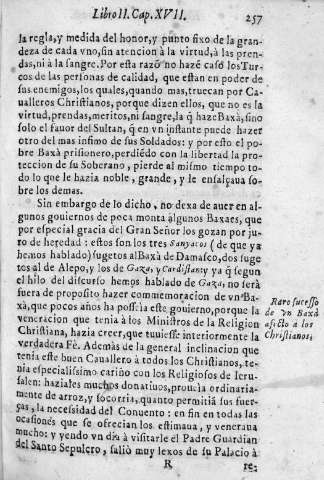 Libro II. Cap. XVII. 257
la regla, y medida del honor, y punto fixo de la gran-
deza de cada vno, sin atencion à la virtud, à las pren-
das, ni à la sangre. Por esta razõ no hazẽ casò los Tur-
cos de las personas de calidad, que estan en poder de
sus enemigos, los quales, quando mas, truecan por Ca-
ualleros Christianos, porque dizen ellos, que no es la
virtud, prendas, meritos, ni sangre, la q̃ haze Baxà, sino
solo el fauor del Sultan, q̃ en vn instante puede hazer
otro del mas infimo de sus Soldados: y por esto el po-
bre Baxà prisionero, perdiẽdo con la libertad la pro-
teccion de su Soberano, pierde al mismo tiempo to-
do lo que le hazia noble, grande, y le ensalçaua so-
bre los demas.
Sin embargo de lo dicho, no dexa de auer en al-
gunos gouiernos de poca monta algunos Baxaes, que
por especial gracia del Gran Señor los gozan por ju-
ro de heredad: estos son los tres Sanyacos (de que ya
hemos hablado) sugetos al Baxà de Damasco, dos suge
tos al de Alepo, y los de Gaza, y Cardistan: y ya q̃ segun
el hilo del discurso hemos hablado de Gaza, no serà
fuera de proposito hazer commemoracion de vn Ba-
xà, que pocos años ha posseìa este gouierno, porque la
veneracion que tenia à los Ministros de la Religion
Christiana, hazia creer, que tuuiesse interiormente la
verdadera Fè. Ademàs de la general inclinacion que
tenia este buen Cauallero à todos los Christianos, te-
nia especialissimo cariño con los Religiosos de Ieru-
salen: haziales muchos donatiuos, prouìa ordinaria-
mente de arroz, y socorria, quanto permitia sus fuer-
ças, la necessidad del Conuento: en fin en todas las
ocasiones que se ofrecian los estimaua, y veneraua
mucho: y yendo vn dia à visitarle el Padre Guardian
del Santo Sepulcro, saliò muy lexos de su Palacio à
R re-
Raro sucesso
de vn Baxà
afecto a los
Christianos;